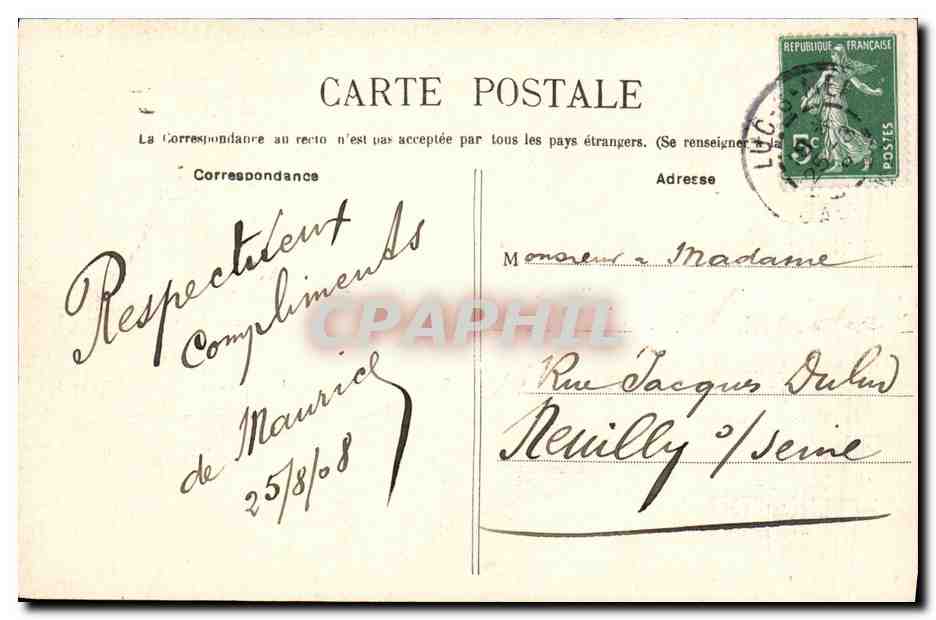 CARTE POSTALE
La Correspondance au recto n'est pas acceptée par tous les pays étrangers. (Se renseigner à la
Correspondance
Adresse
RÉPUBLIQUE FRANÇAISE
5c
POSTES
LUC-S-MER
Respectueux
Compliments
de Maurice
25/8/08
Monsieur & Madame
Rue Jacques Dulud
Neuilly s/ Seine
CPAPHIL